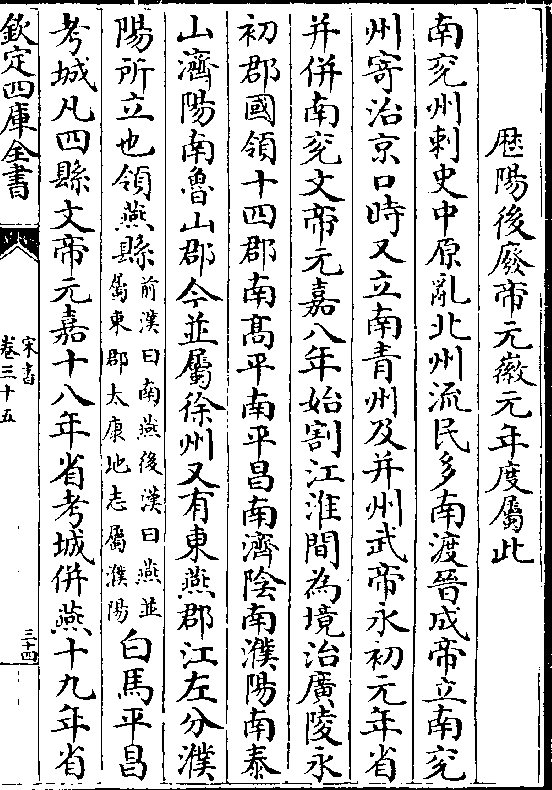 歴陽後廢帝元徽元年度屬此
南兖州刺史中原亂北州流民多南渡晉成帝立南兖
州寄治京口時又立南青州及并州武帝永初元年省
并併南兖文帝元嘉八年始割江淮間為境治廣陵永
初郡國領十四郡南髙平南平昌南濟隂南濮陽南泰
山濟陽南魯山郡今並屬徐州又有東燕郡江左分濮
陽所立也領燕縣前漢曰南燕後漢曰燕並屬東郡太康地志屬濮陽白馬平昌
考城凡四縣文帝元嘉十八年省考城併燕十九年省
欽定四庫全書
宋書
卷三十五
三十四